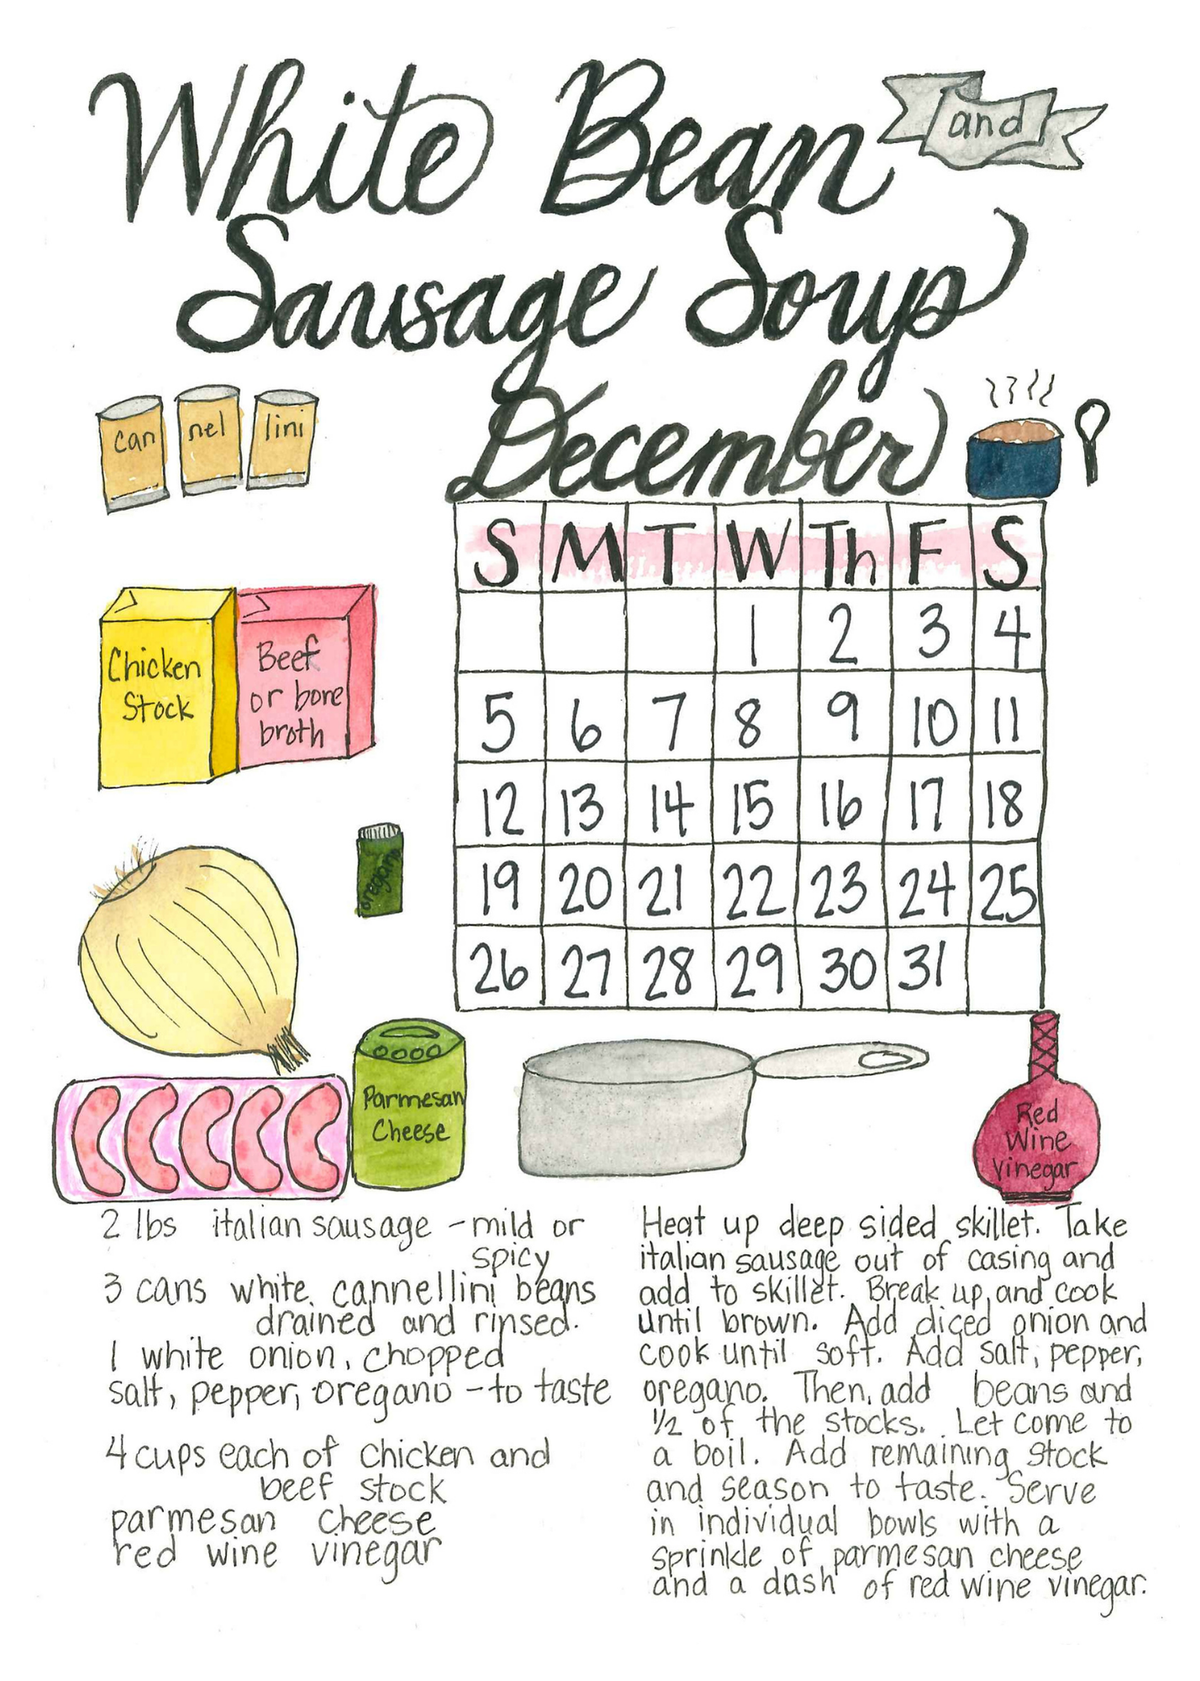 White Bean and
Sausage Soup
December
can nel lini
S M T W Th F S
1 2 3 4
5 6 7 8 9 10 11
12 13 14 15 16 17 18
19 20 21 22 23 24 25
26 27 28 29 30 31
Chicken
Stock
Beef
or bone
broth
oregano
Parmesan
Cheese
Red
Wine
Vinegar
2 lbs italian sausage - mild or
spicy
3 cans white cannellini beans
drained and rinsed.
1 white onion, chopped
salt, pepper, oregano - to taste
4 cups each of chicken and
beef stock
parmesan cheese
red wine vinegar
Heat up deep sided skillet. Take
italian sausage out of casing and
add to skillet. Break up and cook
until brown. Add diced onion and
cook until soft. Add salt, pepper,
oregano. Then, add beans and
1/2 of the stocks. Let come to
a boil. Add remaining stock
and season to taste. Serve
in individual bowls with a
sprinkle of parmesan cheese
and a dash of red wine vinegar.